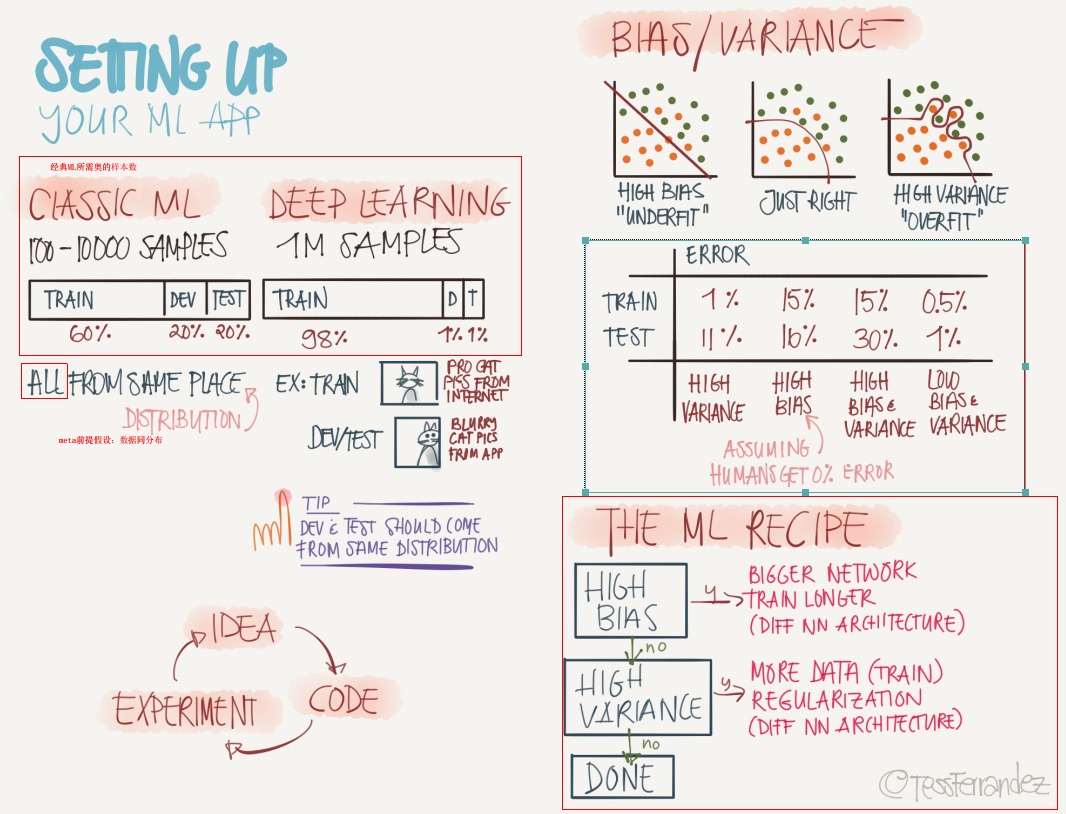 SETTING UP
YOUR ML APP
经典ML所需奥的样本数
CLASSIC ML
100-10000 SAMPLES
TRAIN DEV TEST
60% 20% 20%
DEEP LEARNING
1M SAMPLES
TRAIN D T
98% 1% 1%
ALL FROM SAME PLACE
DISTRIBUTION
meta前提假设：数据同分布
EX: TRAIN
PRO CAT
PICS FROM
INTERNET
DEV/TEST
BLURRY
CAT PICS
FROM APP
TIP
DEV & TEST SHOULD COME
FROM SAME DISTRIBUTION
IDEA
CODE
EXPERIMENT
BIAS/VARIANCE
HIGH BIAS
"UNDERFIT"
JUST RIGHT
HIGH VARIANCE
"OVERFIT"
ERROR
TRAIN 1% 15% 15% 0.5%
TEST 11% 16% 30% 1%
HIGH
VARIANCE
HIGH
BIAS
HIGH
BIAS &
VARIANCE
LOW
BIAS &
VARIANCE
ASSUMING
HUMANS GET 0% ERROR
THE ML RECIPE
HIGH
BIAS
y
BIGGER NETWORK
TRAIN LONGER
(DIFF NN ARCHIITECTURE)
no
HIGH
VARIANCE
y
MORE DATA (TRAIN)
REGULARIZATION
(DIFF NN ARCHITECTURE)
no
DONE
©TessFerrandez